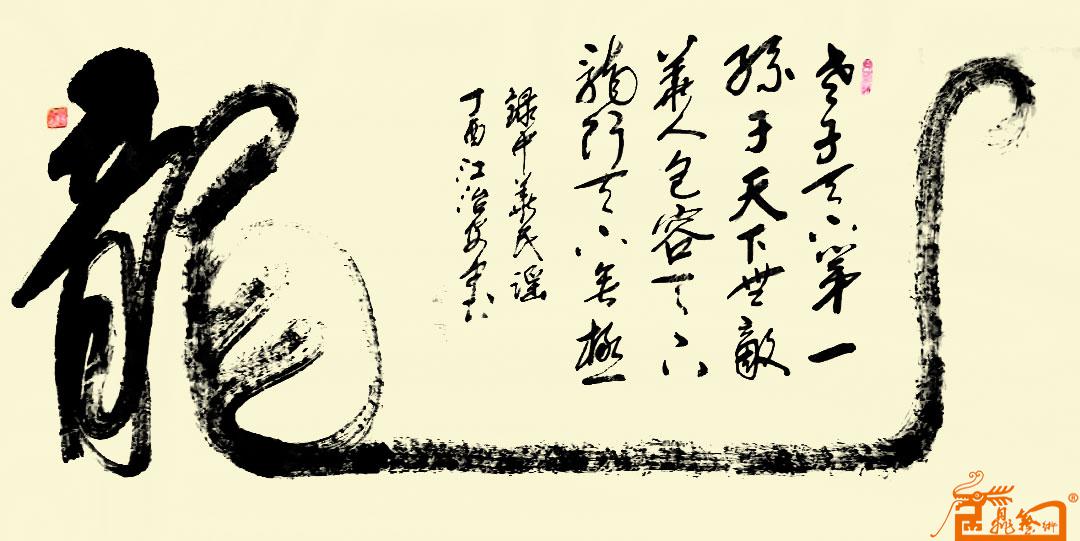 老子天下第一
孫子天下無敵
華人包容天下
龍行天下無極
錄中華民謡
丁酉江治安書
龍